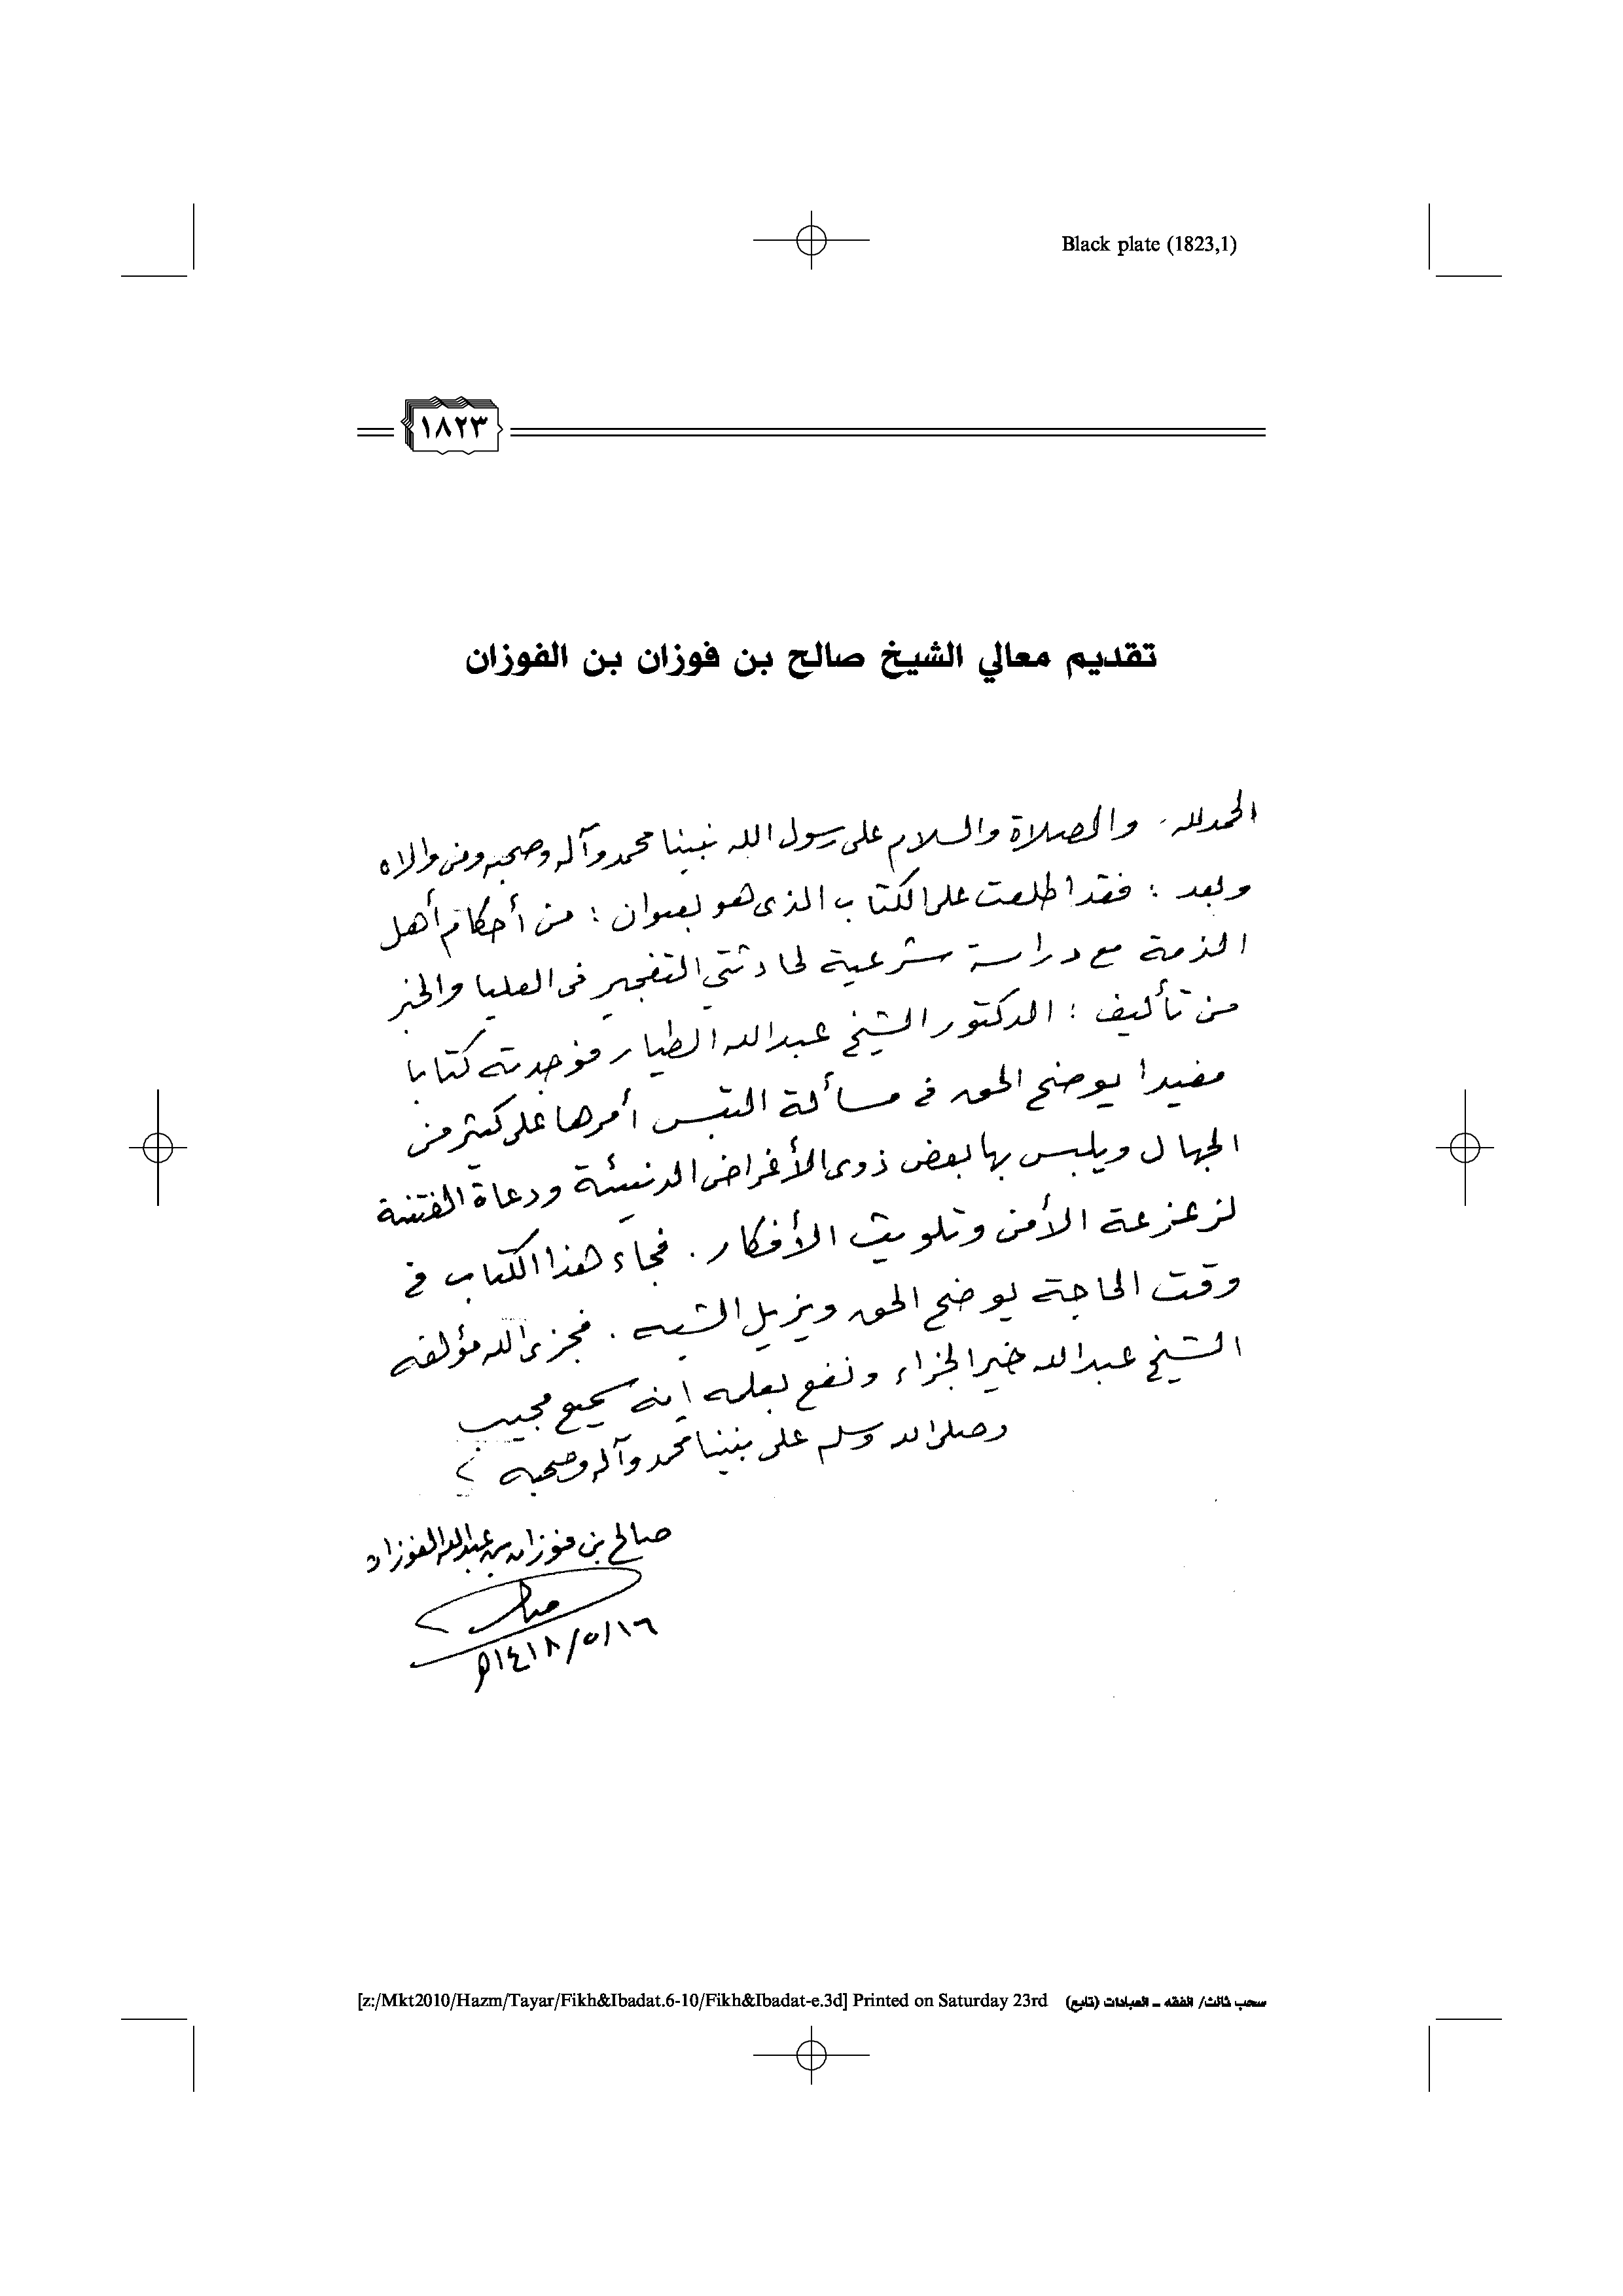 Black plate (1823,1)
١٨٢٣
تقديم معالي الشيخ صالح بن فوزان بن الفوزان
الحمد لله. والصلاة والسلام على رسول الله نبينا محمد وآله وصحبه ومن والاه
وبعد : فقد اطلعت على الكتاب الذى هو بعنوان : من أحكام أهل
الذمة مع دراسة شرعية لحادثتي التفجير فى العليا والخبر
من تأليف : الدكتور الشيخ عبدالله الطيار فوجدته كتابا
مفيدا يوضح الحق في مسألة التبس أمرها على كثير من
الجهال ويلبس بها بعض ذوى الأغراض الدنيئة ودعاة الفتنة
لزعزعة الأمن وتلويث الأفكار . فجاء هذا الكتاب في
وقت الحاجة يوضح الحق ويزيل الشبه . فجزى الله مؤلفه
الشيخ عبدالله خير الجزاء ونفع بعلمه إنه سميع مجيب
وصلى الله وسلم على نبينا محمد وآله وصحبه
صالح بن فوزان بن عبدالله الفوزان
١٤١٨/٥/١٦هـ
[z:/Mkt2010/Hazm/Tayar/Fikh&Ibadat.6-10/Fikh&Ibadat-e.3d] Printed on Saturday 23rd سحب ثالث/ الفقه ـ العبادات (تابع)